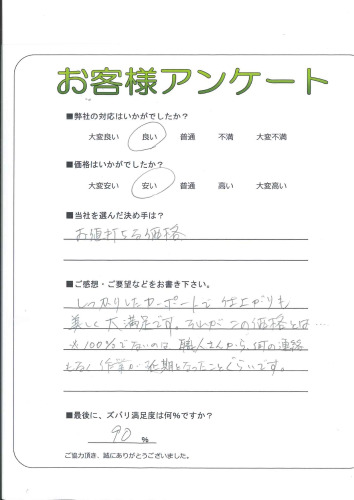 お客様アンケート
■弊社の対応はいかがでしたか？
大変良い 良い 普通 不満 大変不満
■価格はいかがでしたか？
大変安い 安い 普通 高い 大変高い
■当社を選んだ決め手は？
お値打ちな価格
■ご感想・ご要望などをお書き下さい。
しっかりしたカーポートで仕上がりも
美しく大満足です。それがこの価格とは…
※100%でないのは職人さんから、何の連絡
もなく作業が延期となったことぐらいです。
■最後に、ズバリ満足度は何%ですか？
90 %
ご協力頂き、誠にありがとうございました。